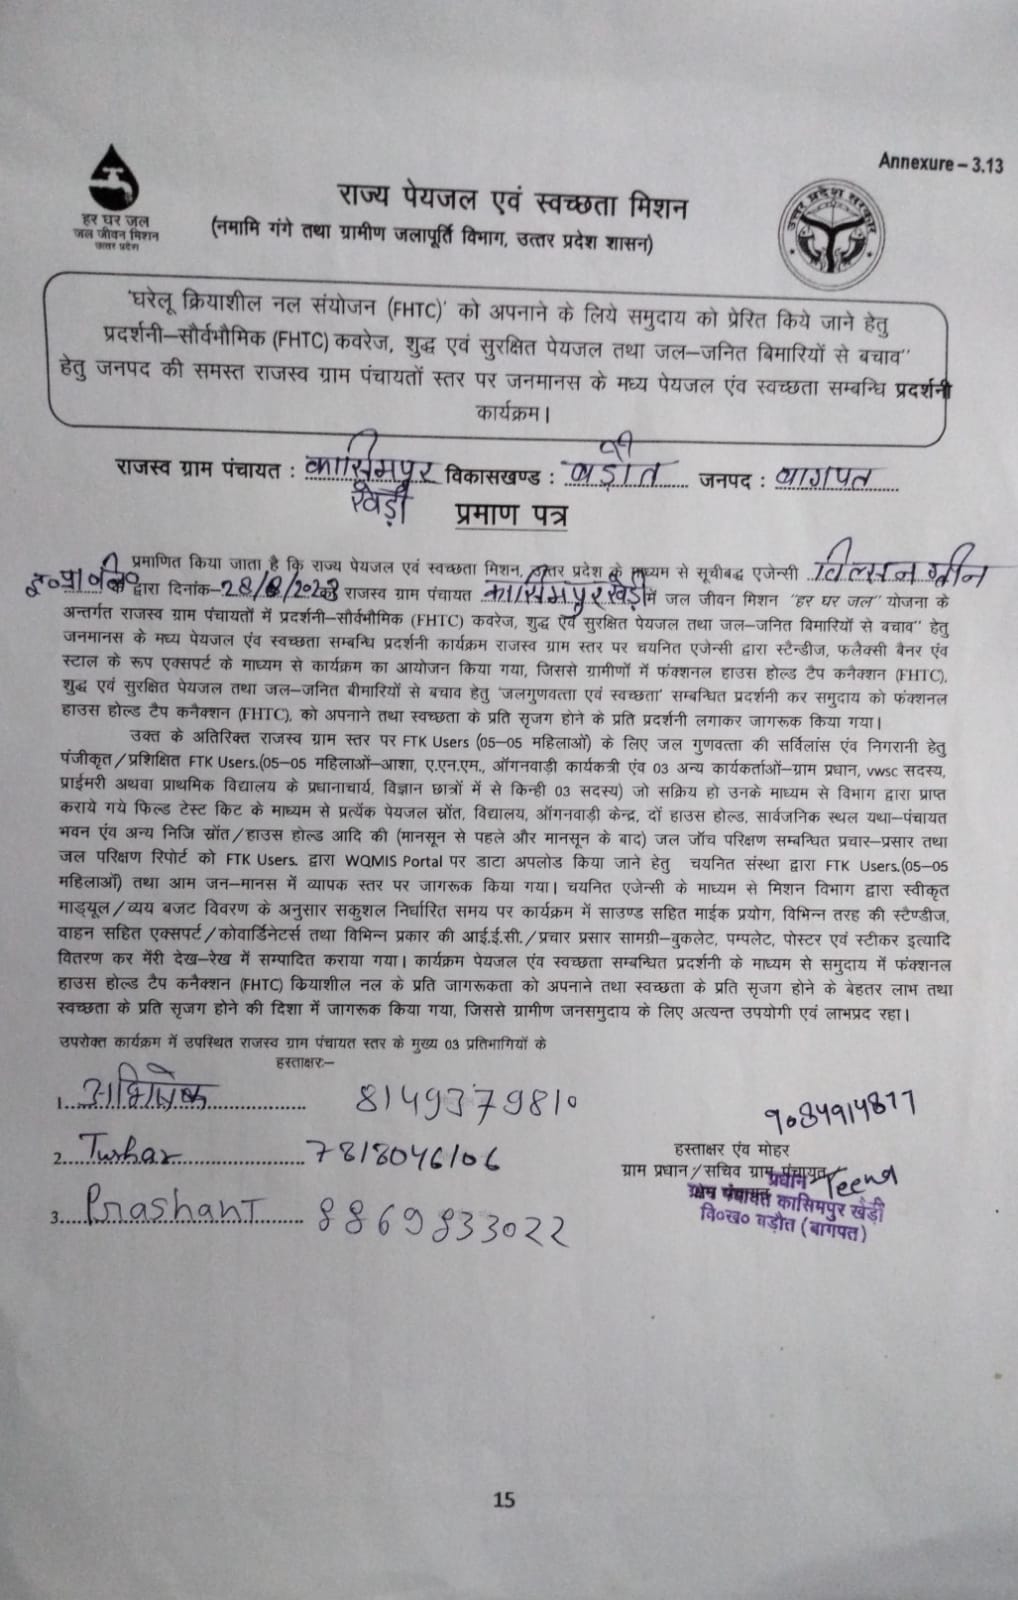 Annexure – 3.13
हर घर जल
जल जीवन मिशन
उत्तर प्रदेश
राज्य पेयजल एवं स्वच्छता मिशन
(नमामि गंगे तथा ग्रामीण जलापूर्ति विभाग, उत्तर प्रदेश शासन)
उत्तर प्रदेश सरकार
'घरेलू क्रियाशील नल संयोजन (FHTC)' को अपनाने के लिये समुदाय को प्रेरित किये जाने हेतु
प्रदर्शनी–सौर्वभौमिक (FHTC) कवरेज, शुद्ध एवं सुरक्षित पेयजल तथा जल–जनित बिमारियों से बचाव"
हेतु जनपद की समस्त राजस्व ग्राम पंचायतों स्तर पर जनमानस के मध्य पेयजल एंव स्वच्छता सम्बन्धि प्रदर्शनी
कार्यक्रम।
राजस्व ग्राम पंचायत : कासिमपुर विकासखण्ड : बड़ौत जनपद : बागपत
खेड़ी
प्रमाण पत्र
प्रमाणित किया जाता है कि राज्य पेयजल एवं स्वच्छता मिशन, उत्तर प्रदेश के माध्यम से सूचीबद्ध एजेन्सी विल्सन ग्रीन
इ० प्रा० लि० द्वारा दिनांक–28/8/2023 को राजस्व ग्राम पंचायत कासिमपुर खेड़ी में जल जीवन मिशन "हर घर जल" योजना के
अन्तर्गत राजस्व ग्राम पंचायतों में प्रदर्शनी–सौर्वभौमिक (FHTC) कवरेज, शुद्ध एवं सुरक्षित पेयजल तथा जल–जनित बिमारियों से बचाव" हेतु
जनमानस के मध्य पेयजल एंव स्वच्छता सम्बन्धि प्रदर्शनी कार्यक्रम राजस्व ग्राम स्तर पर चयनित एजेन्सी द्वारा स्टैन्डीज, फलैक्सी बैनर एंव
स्टाल के रूप एक्सपर्ट के माध्यम से कार्यक्रम का आयोजन किया गया, जिससे ग्रामीणों में फंक्शनल हाउस होल्ड टैप कनैक्शन (FHTC),
शुद्ध एवं सुरक्षित पेयजल तथा जल–जनित बीमारियों से बचाव हेतु 'जलगुणवत्ता एवं स्वच्छता' सम्बन्धित प्रदर्शनी कर समुदाय को फंक्शनल
हाउस होल्ड टैप कनैक्शन (FHTC), को अपनाने तथा स्वच्छता के प्रति सृजग होने के प्रति प्रदर्शनी लगाकर जागरूक किया गया।
उक्त के अतिरिक्त राजस्व ग्राम स्तर पर FTK Users (05–05 महिलाओं) के लिए जल गुणवत्ता की सर्विलांस एंव निगरानी हेतु
पंजीकृत/प्रशिक्षित FTK Users.(05–05 महिलाओं–आशा, ए.एन.एम., ऑगनवाड़ी कार्यकत्री एंव 03 अन्य कार्यकर्ताओं–ग्राम प्रधान, vwsc सदस्य,
प्राईमरी अथवा प्राथमिक विद्यालय के प्रधानाचार्य, विज्ञान छात्रों में से किन्ही 03 सदस्य) जो सक्रिय हो उनके माध्यम से विभाग द्वारा प्राप्त
कराये गये फिल्ड टेस्ट किट के माध्यम से प्रत्येंक पेयजल स्रोंत, विद्यालय, ऑगनवाड़ी केन्द्र, दों हाउस होल्ड, सार्वजनिक स्थल यथा–पंचायत
भवन एंव अन्य निजि स्रोंत/हाउस होल्ड आदि की (मानसून से पहले और मानसून के बाद) जल जॉच परिक्षण सम्बन्धित प्रचार–प्रसार तथा
जल परिक्षण रिपोर्ट को FTK Users. द्वारा WQMIS Portal पर डाटा अपलोड किया जाने हेतु चयनित संस्था द्वारा FTK Users.(05–05
महिलाओं) तथा आम जन–मानस में व्यापक स्तर पर जागरूक किया गया। चयनित एजेन्सी के माध्यम से मिशन विभाग द्वारा स्वीकृत
माड्यूल/व्यय बजट विवरण के अनुसार सकुशल निर्धारित समय पर कार्यक्रम में साउण्ड सहित माईक प्रयोग, विभिन्न तरह की स्टैण्डीज,
वाहन सहित एक्सपर्ट/कोवार्डिनेटर्स तथा विभिन्न प्रकार की आई.ई.सी./प्रचार प्रसार सामग्री–बुकलेट, पम्पलेट, पोस्टर एवं स्टीकर इत्यादि
वितरण कर मेंरी देख–रेख में सम्पादित कराया गया। कार्यक्रम पेयजल एंव स्वच्छता सम्बन्धित प्रदर्शनी के माध्यम से समुदाय में फंक्शनल
हाउस होल्ड टैप कनैक्शन (FHTC) कियाशील नल के प्रति जागरूकता को अपनाने तथा स्वच्छता के प्रति सृजग होने के बेहतर लाभ तथा
स्वच्छता के प्रति सृजग होने की दिशा में जागरूक किया गया, जिससे ग्रामीण जनसमुदाय के लिए अत्यन्त उपयोगी एवं लाभप्रद रहा।
उपरोक्त कार्यक्रम में उपस्थित राजस्व ग्राम पंचायत स्तर के मुख्य 03 प्रतिभागियों के
हस्ताक्षरः–
1. अभिषेक 8149379810
9084914877
2. Tushar 7818046106
हस्ताक्षर एंव मोहर
ग्राम प्रधान/सचिव ग्राम पंचायत
3. Prashant 8869833022
प्रधान Teena
ग्राम पंचायत कासिमपुर खेड़ी
वि०ख० बड़ौत (बागपत)
15